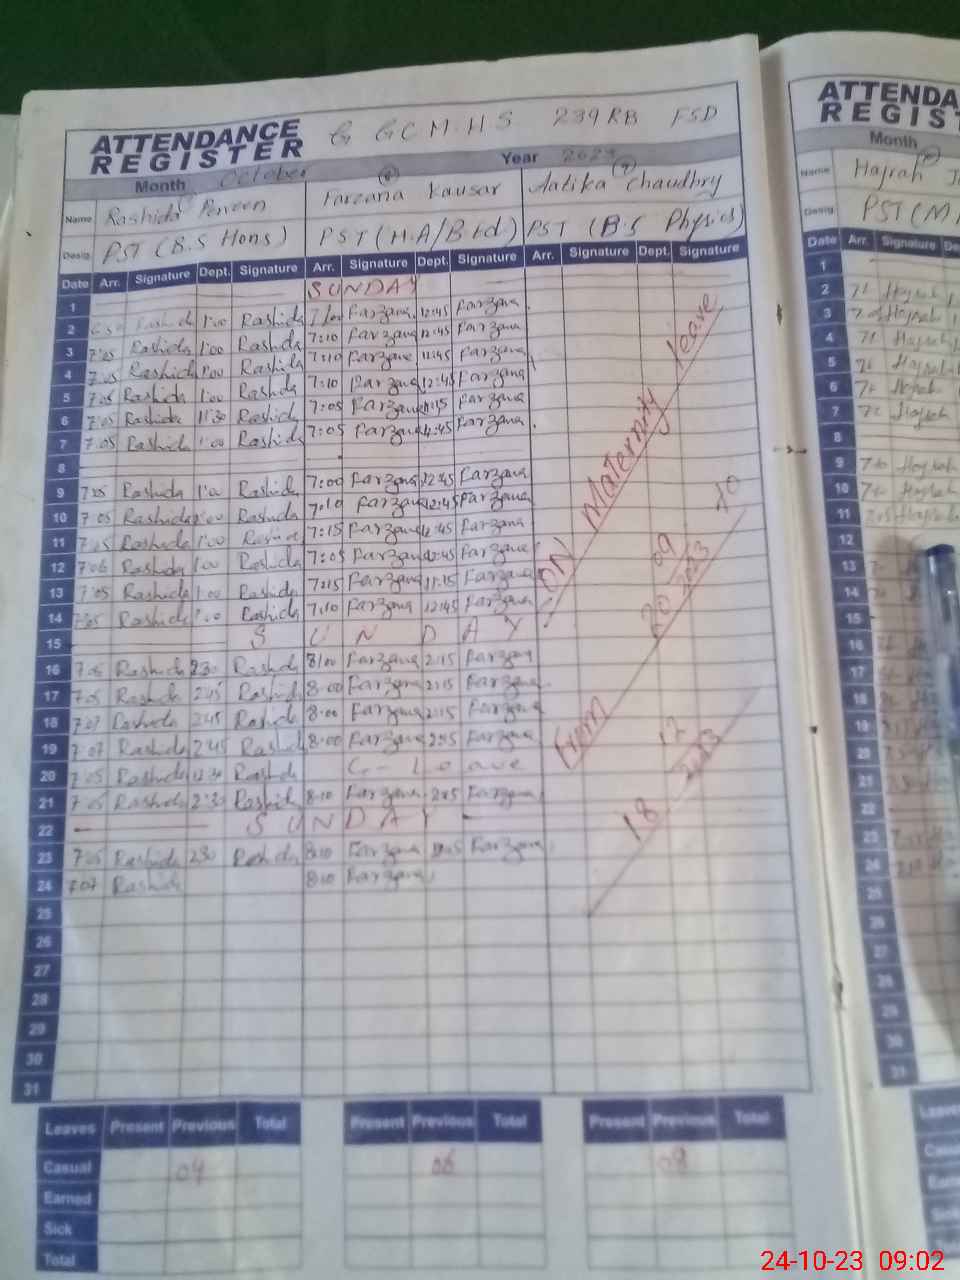 ATTENDANCE REGISTER G GCMHS 239RB FSD
Month October Year 2023
Name Rashida Perveen Farzana Kausar Aatika Chaudhry
Desig. PST (B.S Hons) PST (M.A/B.ed) PST (B.S Physics)
Date Arr. Signature Dept. Signature Arr. Signature Dept. Signature Arr. Signature Dept. Signature
1 SUNDAY
2 Rashida 1:00 Rashida Farzana 12:45 Farzana
3 7:05 Rashida 1:00 Rashida 7:10 Farzana 12:45 Farzana
4 7:05 Rashida 1:00 Rashida 7:10 Farzana 12:45 Farzana
5 7:05 Rashida 1:00 Rashida 7:10 Farzana 12:45 Farzana
6 7:05 Rashida 11:30 Rashida 7:05 Farzana 11:15 Farzana
7 7:05 Rashida 1:00 Rashida 7:05 Farzana 12:45 Farzana
8
9 7:05 Rashida 1:00 Rashida 7:00 Farzana 12:45 Farzana
10 7:05 Rashida 1:00 Rashida 7:10 Farzana 12:45 Farzana
11 7:05 Rashida 1:00 Rashida 7:15 Farzana 12:45 Farzana
12 7:06 Rashida 1:00 Rashida 7:05 Farzana 12:45 Farzana
13 7:05 Rashida 1:00 Rashida 7:15 Farzana 11:15 Farzana
14 7:05 Rashida 1:00 Rashida 7:10 Farzana 12:45 Farzana
15 SUNDAY
16 7:05 Rashida 2:30 Rashida 8:00 Farzana 2:15 Farzana
17 7:05 Rashida 2:45 Rashida 8:00 Farzana 2:15 Farzana
18 7:07 Rashida 2:45 Rashida 8:00 Farzana 2:15 Farzana
19 7:07 Rashida 2:45 Rashida 8:00 Farzana Farzana
20 7:05 Rashida 12:30 Rashida C-Leave
21 7:05 Rashida 2:30 Rashida 8:10 Farzana Farzana
22 SUNDAY
23 7:05 Rashida 2:30 Rashida 8:10 Farzana Farzana
24 7:07 Rashida 8:10 Farzana
25
26
27
28
29
30
31
ON Maternity leave
From 20 09 2023 To
18 12 2023
Leaves Present Previous Total Present Previous Total Present Previous Total
Casual 04 06 08
Earned
Sick
Total
ATTENDA
REGIST
Month
Name Hajrah
Desig. PST (M
Date Arr. Signature De
1
2 Hajrah
3 Hajrah
4 Hajrah
5 Hajrah
6 Hajrah
7 Hajrah
8
9 Hajrah
10 Hajrah
11 Hajrah
12
13
14
15
16
17
18
19
20
21
22
23
24
25
26
27
28
29
30
31
24-10-23 09:02